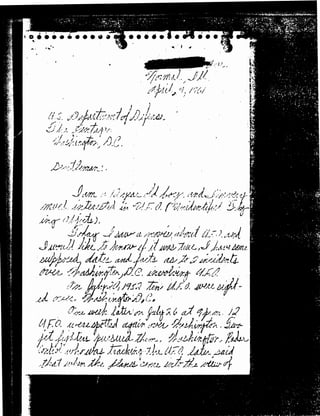 Normal, Ill.
April, 1961
U.S. Department of Defense
The Pentagon
Washington, D.C.
Gentlemen:
I am a year old boy and I am very
much interested in U.F.O. (Unidentified Fly-
ing Objects).
Today I saw a movie about U.F.O. and
I would like to know if it was true. I have some
supposed dates and facts as to 2 incidents
over Washington, D.C. involving U.F.O.
On July 19, 1952 ten U.F.O. were sight-
ed over Washington D.C.
One week later on July 26 at 9 p.m. 12
U.F.O. were spotted again over Washington. Two
jet fighters pursued them. Washington Radar
Control who was tracking the U.F.O. later said
that when the planes came into the view of